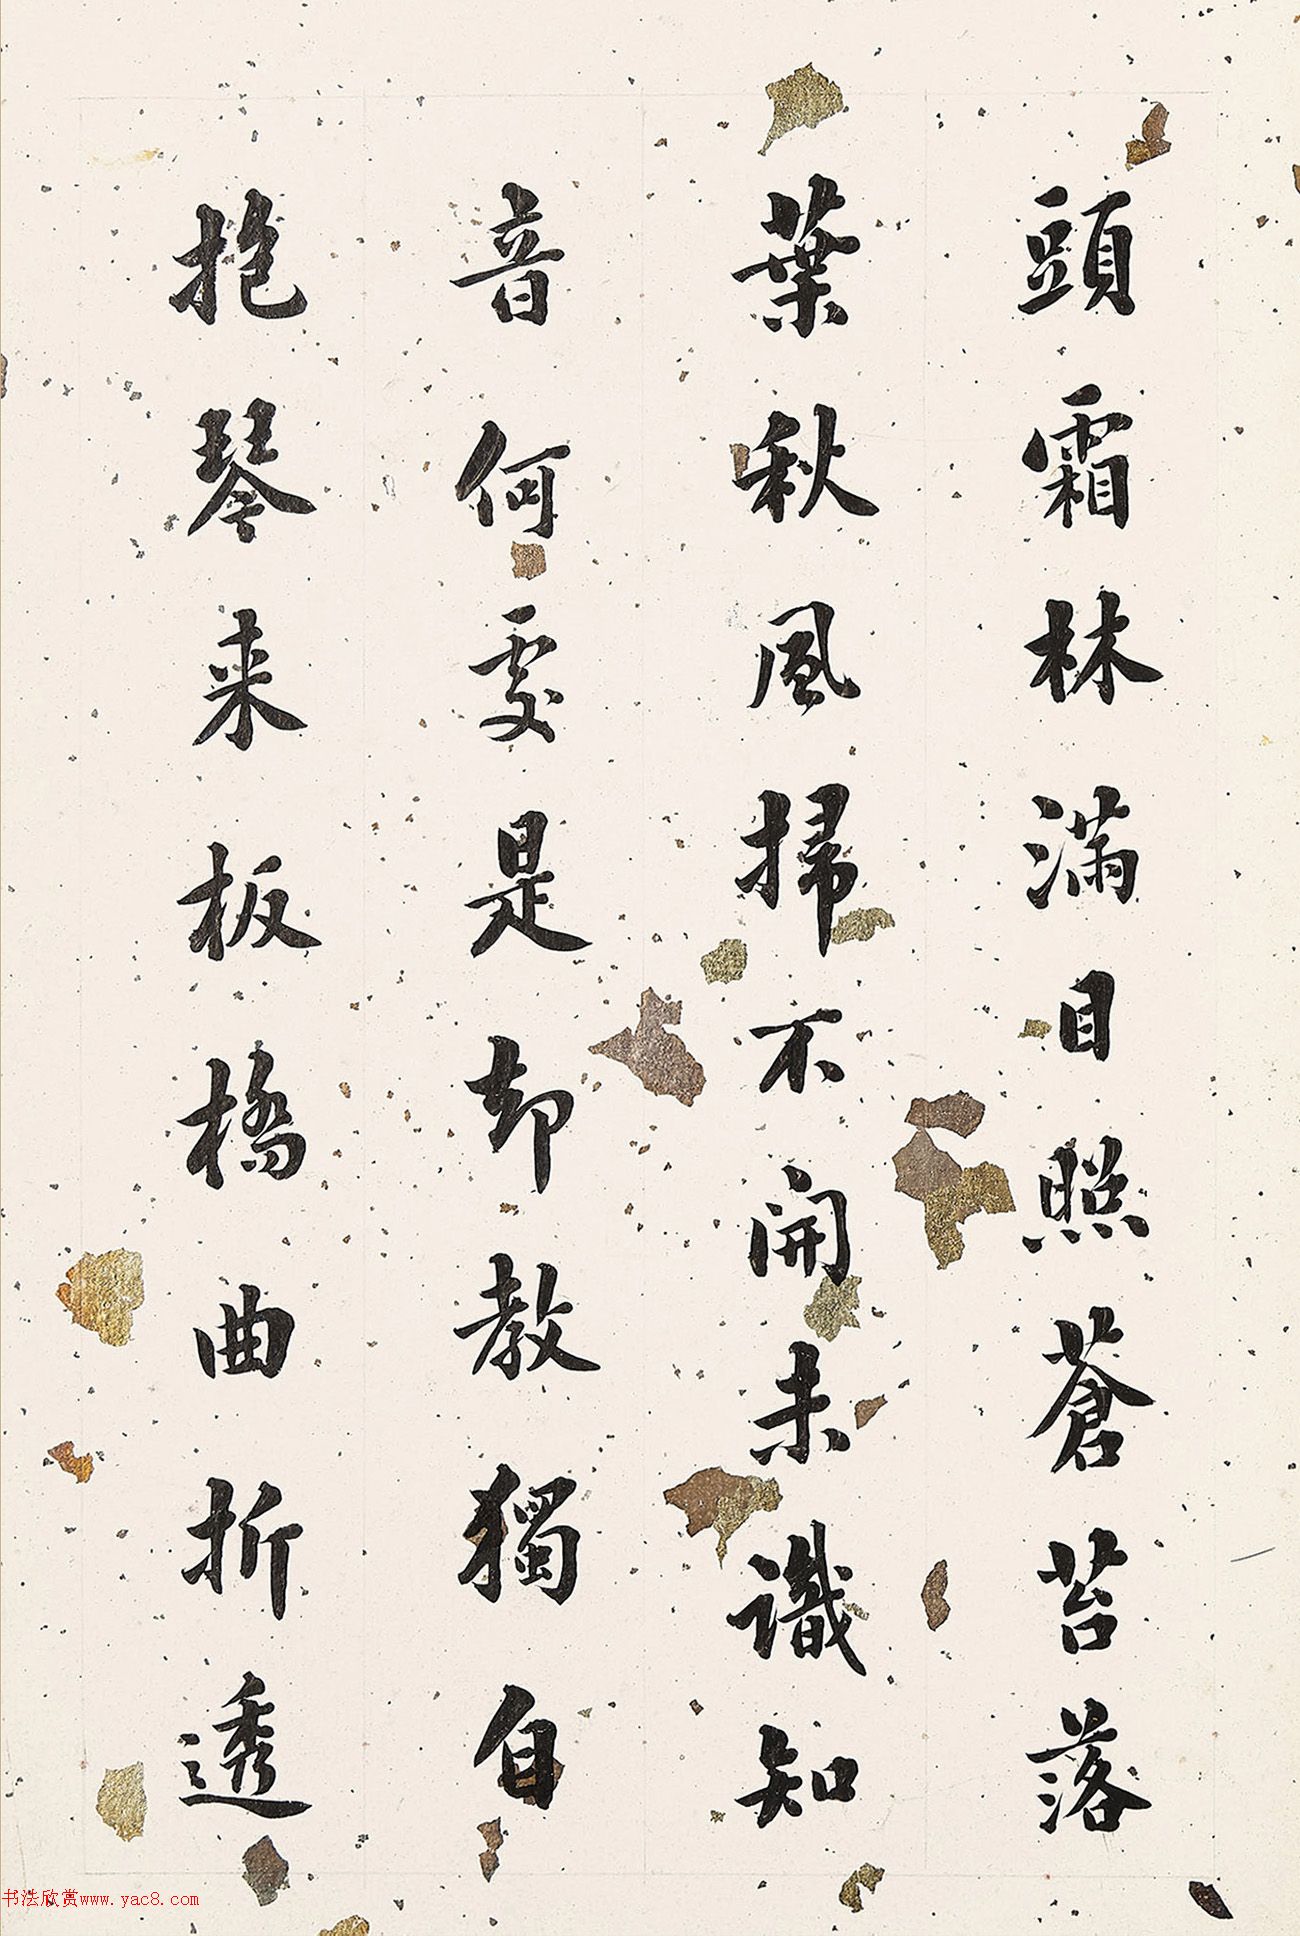 頭霜林滿目照蒼苔落
葉秋風掃不開未識知
音何處是却教獨自
抱琴来板橋曲折透
书法欣赏www.yac8.com